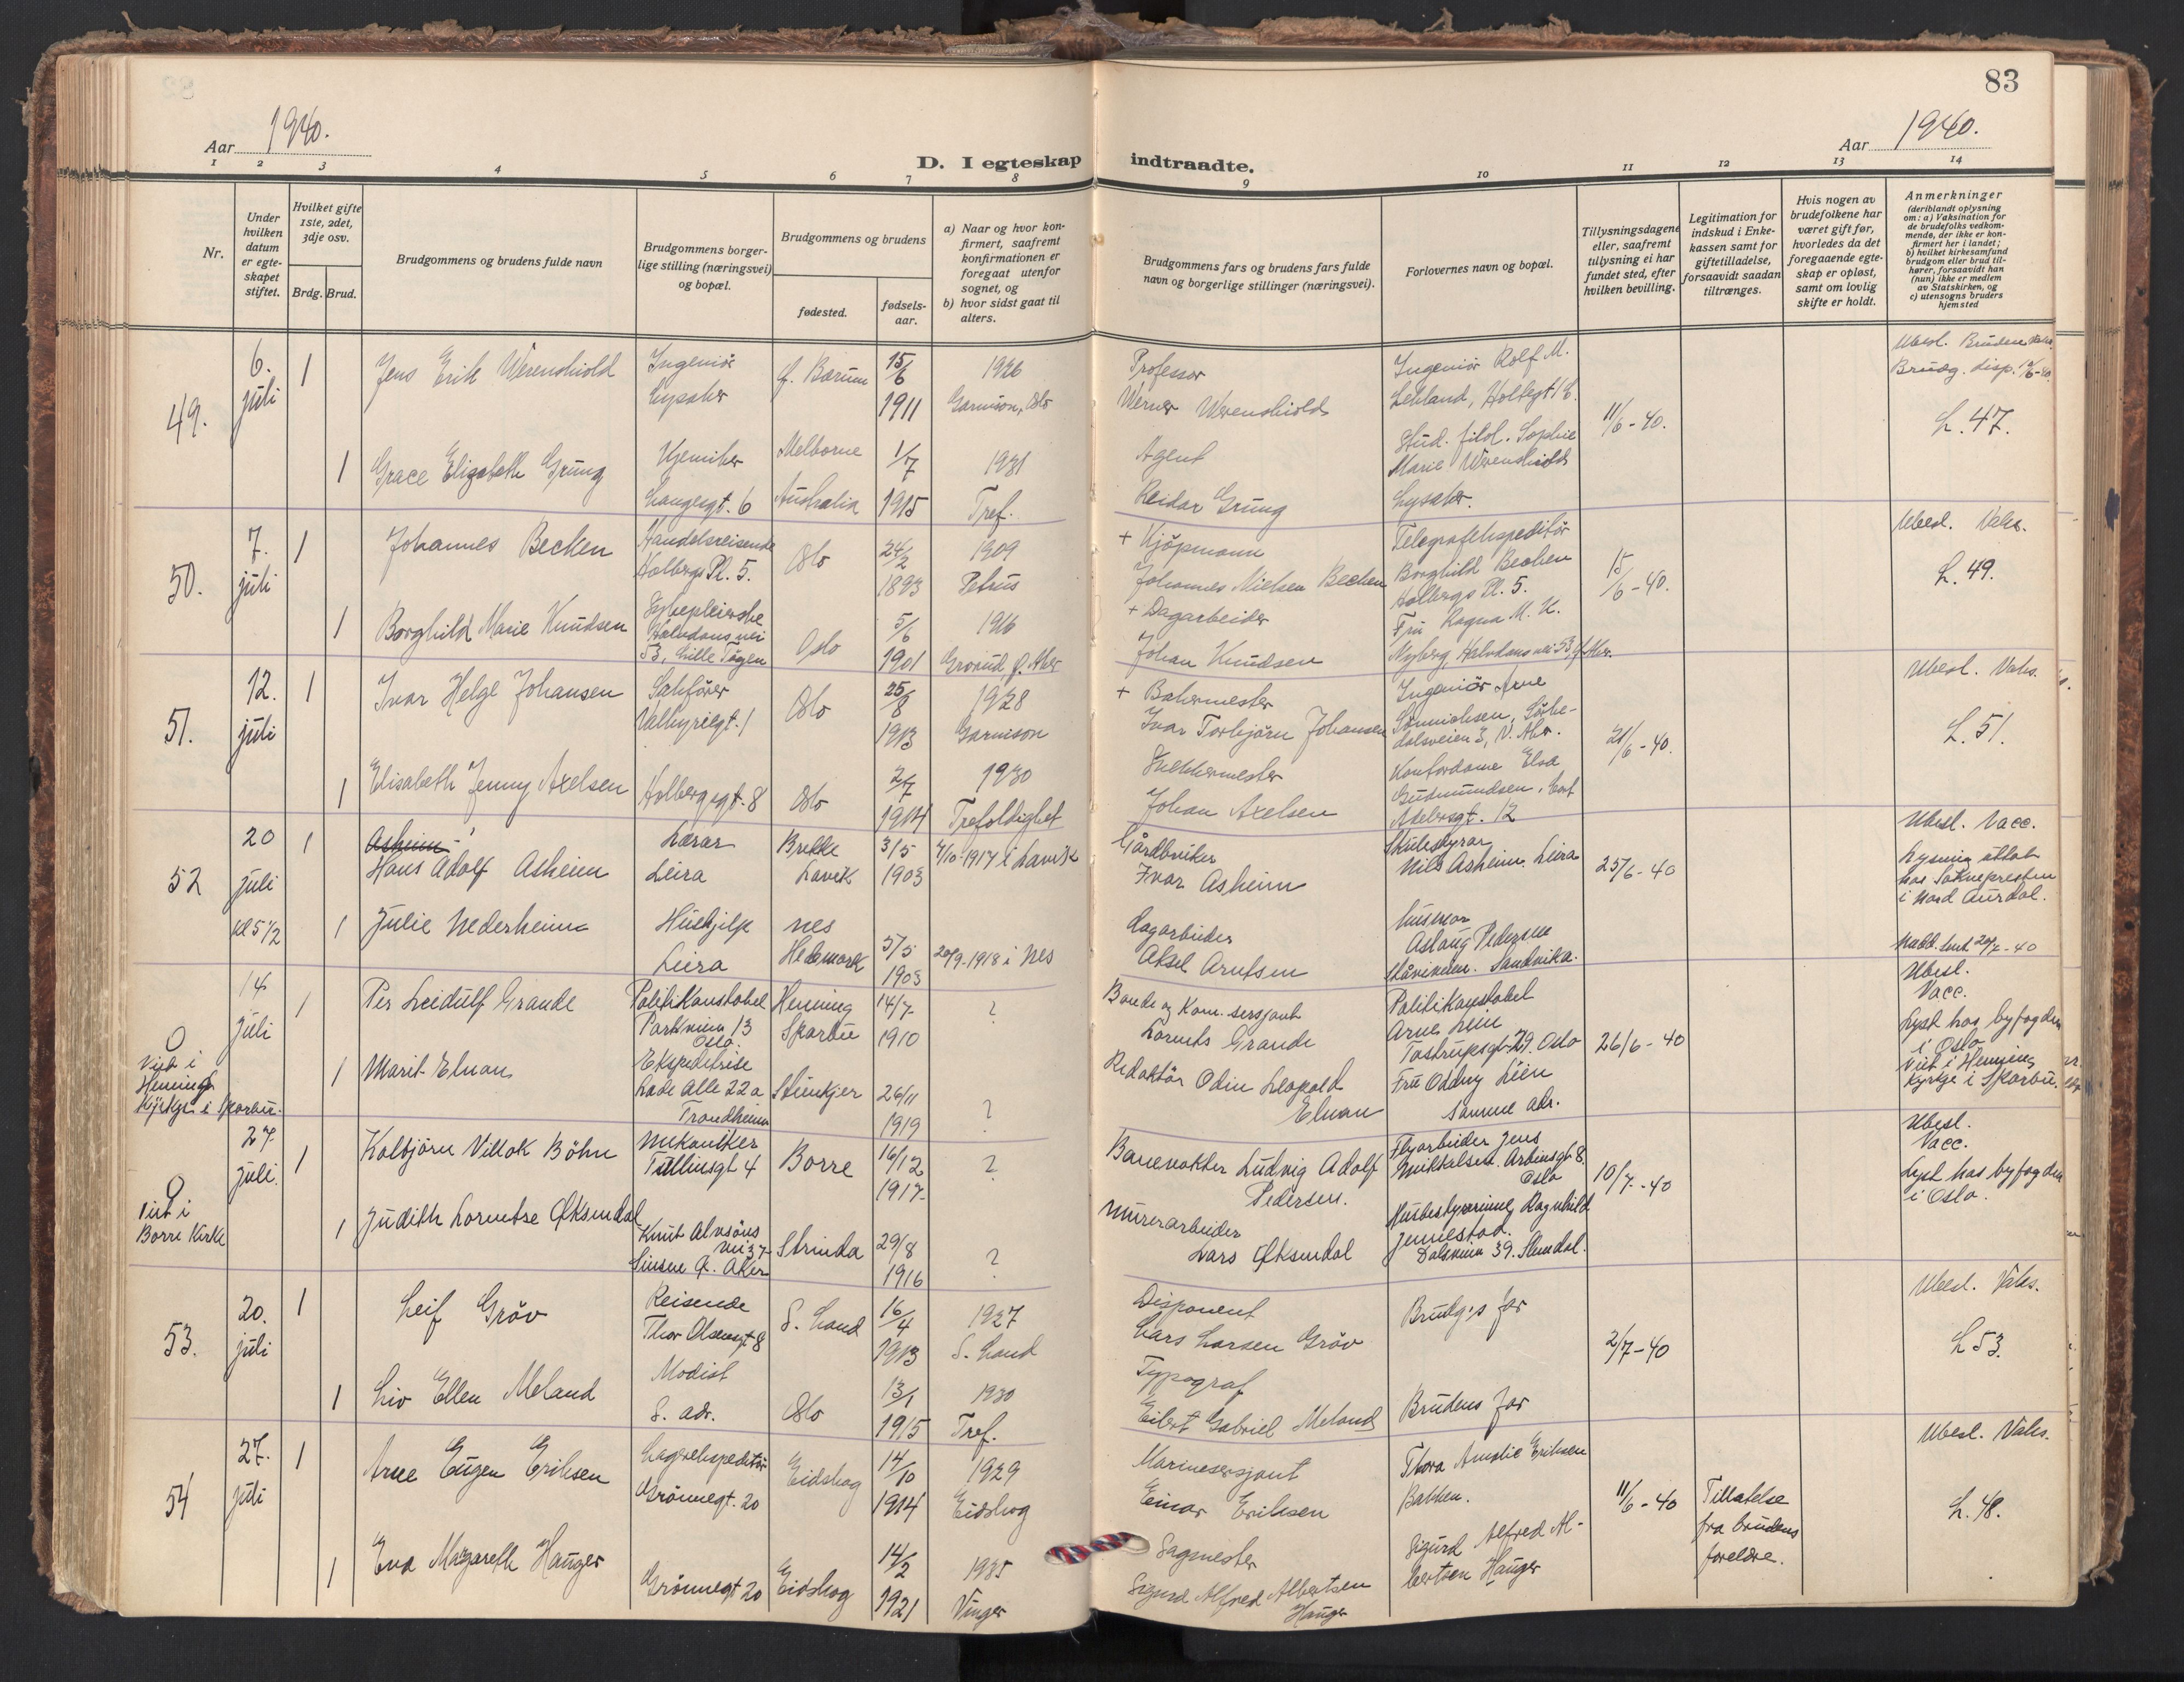 83
Aar 1940.
Aar 1940.
D. I egteskap indtraadte.
1 2 3 4 5 6 7 8 9 10 11 12 13 14
Nr.
Under hvilken datum er egteskapet stiftet.
Hvilket gifte 1ste, 2det, 3dje osv.
Brdg. Brud.
Brudgommens og brudens fulde navn
Brudgommens borgerlige stilling (næringsvei) og bopæl.
Brudgommens og brudens
fødested.
fødselsaar.
a) Naar og hvor konfirmert, saafremt konfirmationen er foregaat utenfor sognet, og
b) hvor sidst gaat til alters.
Brudgommens fars og brudens fars fulde navn og borgerlige stillinger (næringsvei).
Forlovernes navn og bopæl.
Tillysningsdagene eller, saafremt tillysning ei har fundet sted, efter hvilken bevilling.
Legitimation for indskud i Enkekassen samt for giftetilladelse, forsaavidt saadan tiltrænges.
Hvis nogen av brudefolkene har været gift før, hvorledes da det foregaaende egteskap er opløst, samt om lovlig skifte er holdt.
Anmerkninger
(deriblandt oplysning om: a) Vaksination for de brudefolks vedkommende, der ikke er konfirmert her i landet; b) hvilket kirkesamfund brudgom eller brud tilhører, forsaavidt han (hun) ikke er medlem av Statskirken, og c) utensogns bruders hjemsted
49.
6. juli
1
Jens Erik Werenskiold
Ingeniör Lysaker
Ø. Bærum
15/6 1911
1926 Garnison, Oslo
Professor Werner Werenskiold
Ingeniör Rolf M.
11/6 - 40.
Ubesl. Bruden Vaks.
Brudg. disp.
L. 47.
1
Grace Elizabeth Grung
Kjemiker Langesgt. 6
Melborne Australia
1/7 1915
1931 Tref.
Agent Reidar Grung
Stud. filol. Sophie Marie Werenskiold Lysaker.
50.
7. juli
1
Johannes Becken
Handelsreisende Holbergs Pl. 5.
Oslo
24/2 1893
1909 Petrus
+ Kjöpmann Johannes Nielsen Becken
Telegrafekspeditör Borghild Becken Holbergs Pl. 5.
15/6 - 40.
Ubesl. Vaks.
L. 49.
1
Borghild Marie Knudsen
Sykepleierske Halvdans vei 53, Lille Tögen
Oslo
5/6 1901
1916 Grorud, Ø. Aker
+ Dagarbeider Johan Knudsen
Fru Ragna M. K. Nyberg, Halvdans vei 53, Ø. Aker.
51.
12. juli
1
Ivar Helge Johansen
Sakförer Valkyriegt. 1
Oslo
25/8 1913
1928 Garnison
+ Bakermester Ivar Torbjörn Johansen
Ingeniör Arne Sönnichsen, Sörkedalsveien 3, V. Aker.
21/6 - 40.
Ubesl. Vaks.
L. 51.
1
Elisabeth Jenny Axelsen
Holbergsgt. 8
Oslo
2/7 1914
1930 Trefoldighet
Snekkermester Johan Axelsen
Kontordame Elsa Gudmundsen, Cort Adelersgt. 12
52
20 juli kl 5 1/2
1
Asheim
Hans Adolf Asheim
Lærar Leira
Brekke Lavik
3/5 1903
7/10-1917 i Lavik
Gårdbruker Ivar Asheim
Skulestyrar Nils Asheim Leira
25/6 - 40
Ubesl. Vacc.
Lysning uttat hos Soknepresten i Nord Aurdal.
1
Julie Nederheim
Hushjelp Leira
Nes Hedmark
5/5 1903
20/9-1918 i Nes
Dagarbeider Aksel Arntsen
Husmor Aslaug Pedersen Sandvika.
14 juli
Viet i Henning Kyrkje i Sparbu.
1
Per Leidulf Grande
Politikonstabel Parkveien 13 Oslo.
Henning Sparbu
14/7 1910
?
Bonde og Kom. sersjant Lorents Grande
Politikonstabel Arne Lein Tostrupsgt 29. Oslo
26/6 - 40
Ubesl. Vacc.
Lyst hos byfogden i Oslo
Viet i Henning kyrkje i Sparbu.
1
Marit Elnan
Ekspeditrise Lade Alle 22a Trondheim
Steinkjer
26/11 1919
?
Redaktör Odin Leopold Elnan
Fru Oddny Lein samme adr.
27 juli.
Viet i Borre Kirke
1
Kolbjörn Villak Böhn
Mekaniker Tullinsgt 4
Borre
16/12 1917
?
Banevokter Ludvig Adolf Pedersen.
Flyarbeider Jens Mikkelsen. Arbinsgt 8. Oslo
10/7 - 40
Ubesl. Vacc.
Lyst hos byfogden i Oslo.
1
Judith Lorentse Øksendal
Knut Alvsöns vei 37 Sinsen Ø. Aker
Strinda
29/8 1916
?
Murerarbeider Lars Øksendal
Husbestyrerinne Ragnhild Jennestad. Dalsveien 39. Slemdal.
53.
20. juli
1
Leif Gröv
Reisende Thor Olsensgt 8
S. Land
16/4 1913
1927 S. Land
Disponent Lars Larsen Gröv
Brudg's far
2/7 - 40
Ubesl. Vaks.
L 53.
1
Liv Ellen Meland
Modist S. adr.
Oslo
13/1 1915
1930 Tref.
Typograf Eilert Gabriel Meland
Brudens far
54
27. juli
1
Arne Eugen Eriksen
Lagerekspeditör Grönnegt. 20
Eidskog
14/10 1914
1929 Eidskog
Marinesersjant Einar Eriksen
Thora Amalie Eriksen Bakken.
11/6 - 40
Tillatelse fra brudens foreldre.
Ubesl. Vaks.
L. 48.
1
Eva Margareth Hauger
Grönnegt 20
Eidskog
14/2 1921
1935 Vinger
Sagmester Sigurd Alfred Albertsen Hauger
Sigurd Alfred Albertsen Hauger